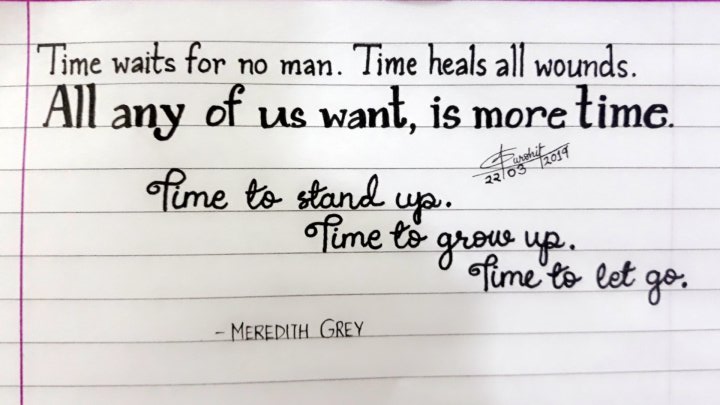 Time waits for no man. Time heals all wounds.
All any of us want, is more time.
22/03/2019
Time to stand up.
Time to grow up.
Time to let go.
- MEREDITH GREY